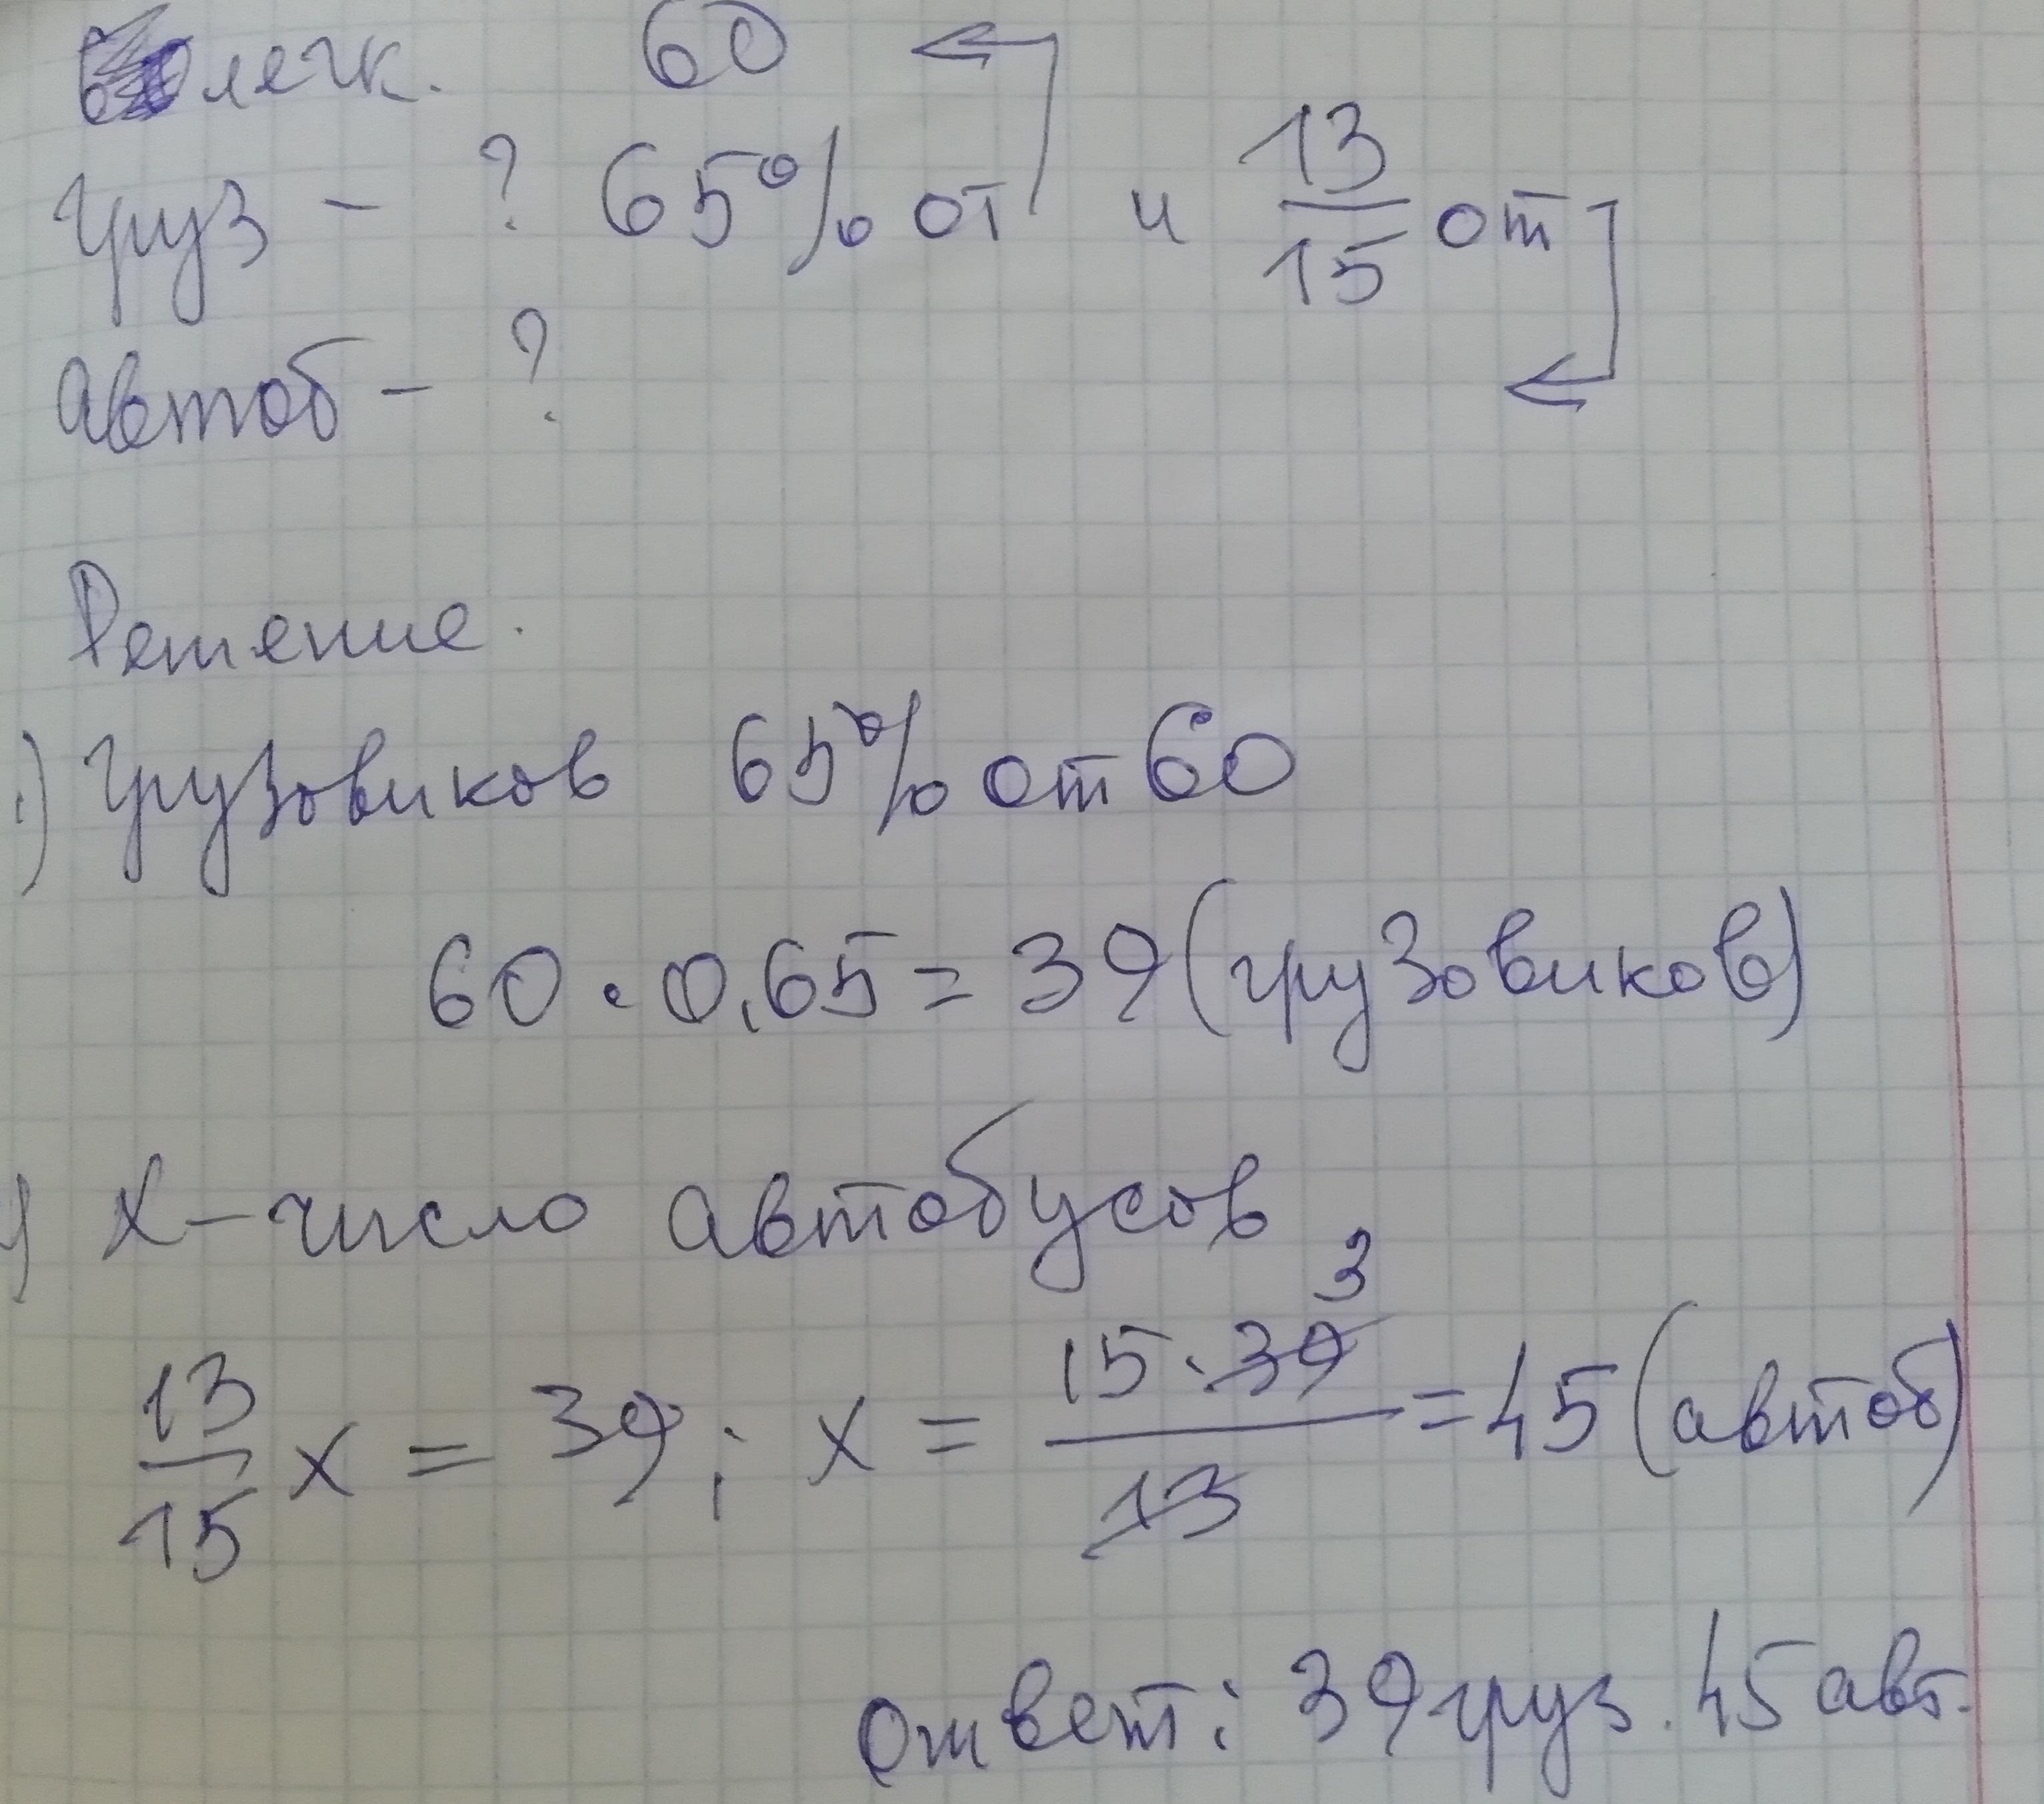 легк. 60
груз - ? 65% от и 13/15 от
автоб - ?
Решение.
1) грузовиков 65% от 60
60 · 0,65 = 39 (грузовиков)
) x - число автобусов
13/15 x = 39; x = 15 · 39 3 / 13 = 45 (автоб)
ответ: 39 груз. 45 авт.